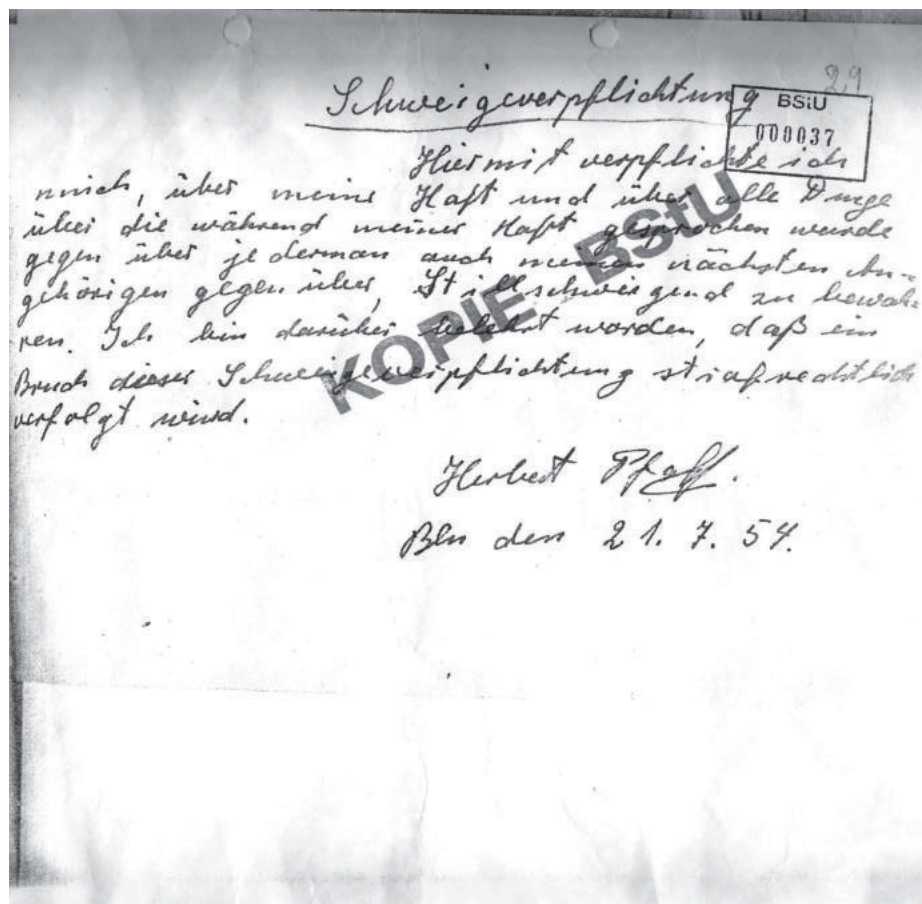 29
Schweigeverpflichtung
BStU
000037
Hiermit verpflichte ich
mich, über meine Haft und über alle Dinge
über die während meiner Haft gesprochen wurde
gegen über jederman auch meinen nächsten An=
gehörigen gegen über, Stillschweigend zu bewah=
ren. Ich bin darüber belehrt worden, daß ein
Bruch dieser Schweigeverpflichtung strafrechtlich
verfolgt wird.
KOPIE BStU
Herbert Pfaff.
Bln den 21. 7. 54.